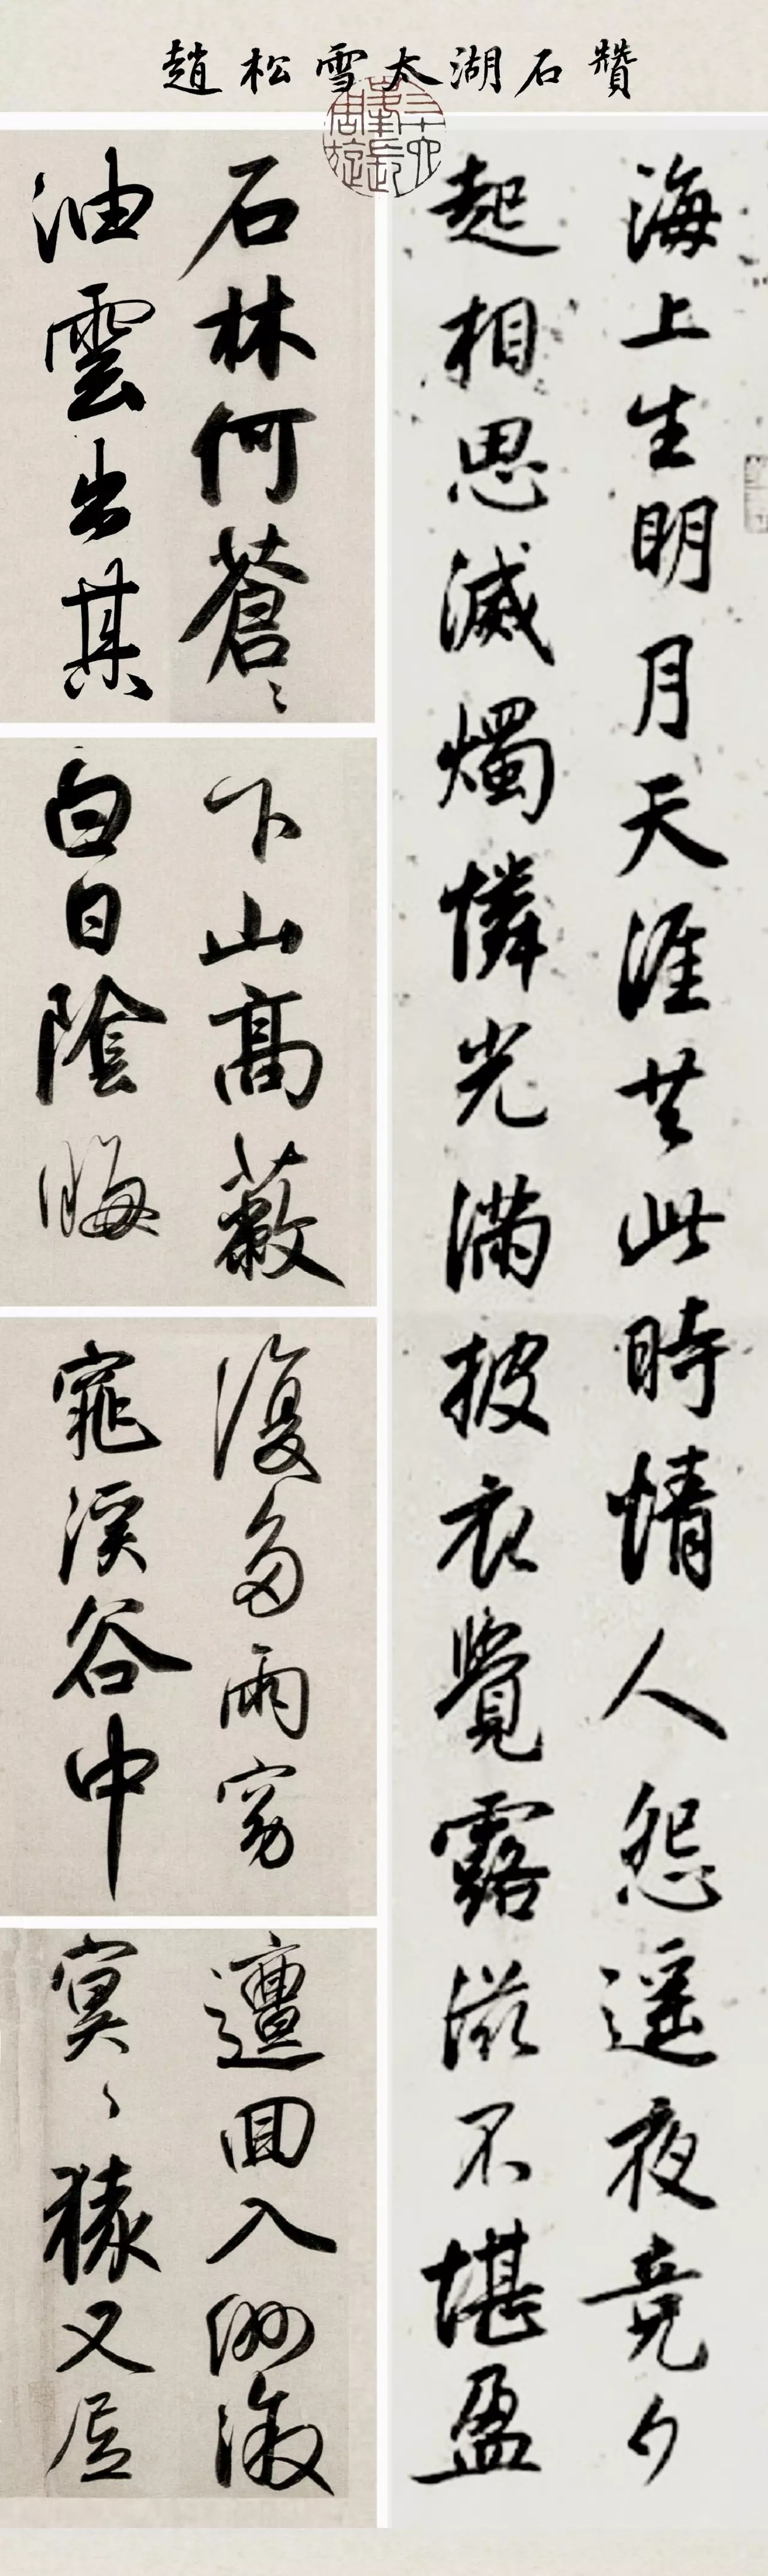 趙松雪太湖石贊
海上生明月天涯共此時情人怨遥夜竟夕
起相思滅燭憐光滿披衣覺露滋不堪盈
石林何蒼〻
油雲出其
下山高蔽
白日陰晦
復多雨窈
窕溪谷中
邅回入洲漵
冥〻猿又居